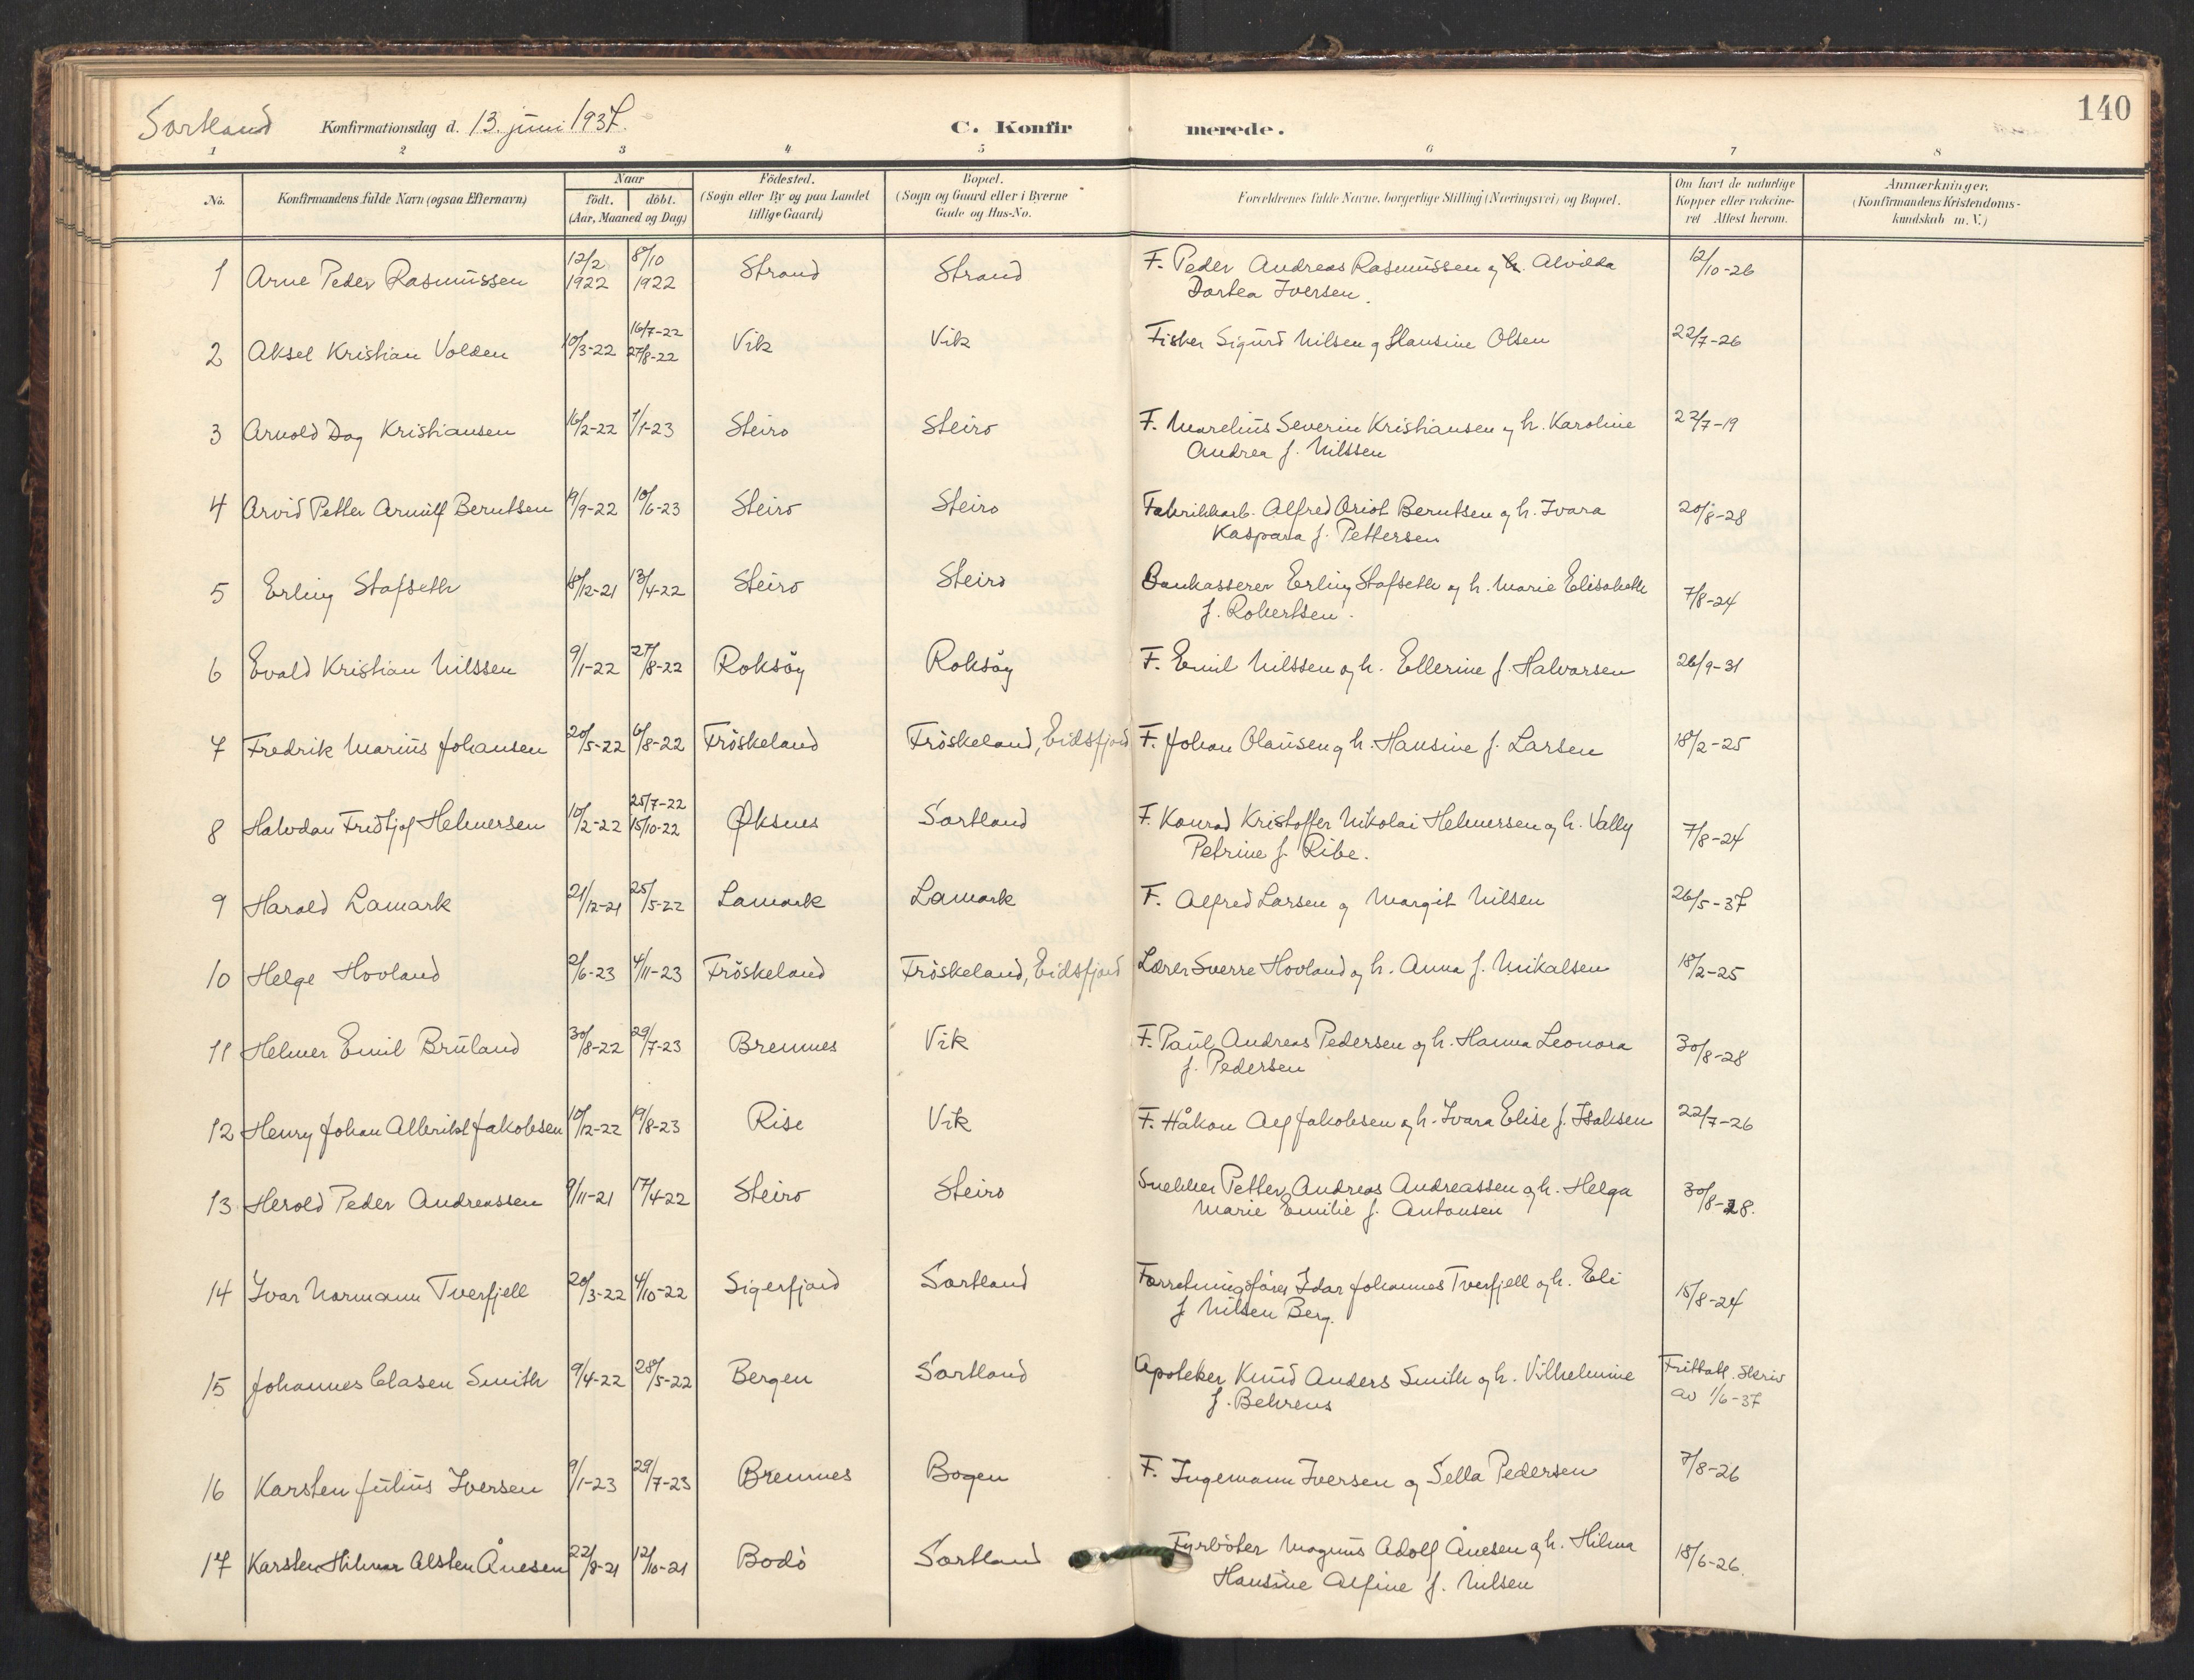 140
Sortland Konfirmationsdag d. 13. juni 1937. C. Konfirmerede.
1 2 3 4 5 6 7 8
No. Konfirmandens fulde Navn (ogsaa Efternavn) Naar födt. döbt. (Aar, Maaned og Dag) Födested. (Sogn eller By og paa Landet tillige Gaard) Bopæl. (Sogn og Gaard eller i Byerne Gade og Hus-No. Forældrenes fulde Navne, borgerlige Stilling (Næringsvei) og Bopæl. Om havt de naturlige Kopper eller vaccineret Attest herom. Anmærkninger. (Konfirmandens Kristendomskundskab m. V.)
1 Arne Peder Rasmussen 12/2 1922 8/10 1922 Strand Strand F. Peder Andreas Rasmussen og h. Alvilda 12/10-26
Dortea Iversen.
2 Aksel Kristian Volden 10/3-22 16/7-22 27/8-22 Vik Vik Fisker Sigurd Nilsen og Hansine Olsen 22/7-26
3 Arnold Dag Kristiansen 16/2-22 1/1-23 Steiro Steiro F. Marelius Severin Kristiansen og h. Karoline 22/7-19
Andrea f. Nilssen
4 Arvid Petter Arnulf Berntsen 19/9-22 10/6-23 Steiro Steiro Fabrikkarb. Alfred Oriot Berntsen og h. Ivara 20/8-28
Kaspara f. Pettersen
5 Erling Stafseth 18/12-21 13/4-22 Steiro Steiro Bankasserer Erling Stafseth og h. Marie Elisabeth 7/8-24
f. Robertsen.
6 Evald Kristian Nilssen 9/1-22 27/8-22 Roksöy Roksöy F. Emil Nilssen og h. Ellerine f. Halvorsen 26/9-31
7 Fredrik Marius Johansen 20/5-22 6/8-22 Fröskeland Fröskeland, Eidsfjord F. Johan Olausen og h. Hansine f. Larsen 18/2-25
8 Halvdan Fridtjof Helmersen 10/2-22 25/7-22 15/10-22 Øksnes Sortland F. Konrad Kristoffer Nikolai Helmersen og h. Vally 7/8-24
Petrine f. Ribe.
9 Harald Lamark 21/12-21 25/5-22 Lamark Lamark F. Alfred Larsen og Margit Nilsen 26/5-37
10 Helge Hovland 2/6-23 4/11-23 Fröskeland Fröskeland, Eidsfjord Lærer Sverre Hovland og h. Anna f. Mikalsen 18/2-25
11 Helmer Emil Bruland 30/8-22 29/7-23 Bremnes Vik F. Paul Andreas Pedersen og h. Hanna Leonora 30/8-28
f. Pedersen
12 Henry Johan Albrikt Jakobsen 10/12-22 19/8-23 Rise Vik F. Håkon Alf Jakobsen og h. Ivara Elise f. Isaksen 22/7-26
13 Herold Peder Andreassen 9/11-21 17/4-22 Steiro Steiro Snekker Petter Andreas Andreassen og h. Helga 30/8-28.
Marie Emilie f. Antonsen
14 Ivar Normann Tverfjell 20/3-22 4/10-22 Sigerfjord Sortland Forretningsförer Idar Johannes Tverfjell og h. Eli 15/8-24
f. Nilsen Berg.
15 Johannes Clasen Smith 9/4-22 28/5-22 Bergen Sortland Apoteker Knud Anders Smith og h. Vilhelmine Frittatt. Skriv
f. Behrens av 1/6-37
16 Karsten Julius Iversen 9/1-23 29/7-23 Bremnes Bogen F. Ingemann Iversen og Sella Pedersen 7/8-26
17 Karsten Hilmar Alsten Ånesen 22/8-21 12/10-21 Bodö Sortland Fyrböter Magnus Adolf Ånesen og h. Hilma 18/6-26.
Hansine Alfine f. Nilsen